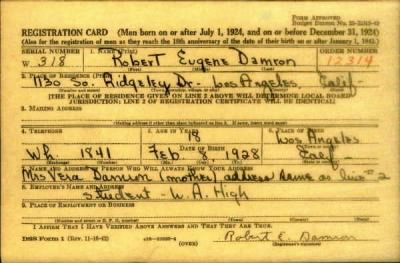 Form Approved
REGISTRATION CARD (Men born on or after July 1, 1924, and on or before December 31, 1924)
(Also for the registration of men as they reach the 18th anniversary of the date of their birth on or after January 1, 1943.)
SERIAL NUMBER 1. NAME (Print) ORDER NUMBER
W 318 Robert Eugene Damron 12314
(First) (Middle) (Last)
2. PLACE OF RESIDENCE (Print)
1130 So. Ridgeley Dr. Los Angeles Calif
[THE PLACE OF RESIDENCE GIVEN ON LINE 2 ABOVE WILL DETERMINE LOCAL BOARD
JURISDICTION; LINE 2 OF REGISTRATION CERTIFICATE WILL BE IDENTICAL]
3. MAILING ADDRESS
[Mailing address if other than place indicated on line 2. If same, insert word same]
4. TELEPHONE 5. AGE IN YEARS 6. PLACE OF BIRTH
18 Los Angeles
DATE OF BIRTH
Wh. 1841 Feb 8 1928 Calif
(Exchange) (Number) (Mo.) (Day) (Yr.) (State or country)
7. NAME AND ADDRESS OF PERSON WHO WILL ALWAYS KNOW YOUR ADDRESS
Mrs Vera Damron (mother) address same as line #2
8. EMPLOYER'S NAME AND ADDRESS
Student - W. A. High
9. PLACE OF EMPLOYMENT OR BUSINESS
(Number and street or R. F. D. number) (Town) (County) (State)
I AFFIRM THAT I HAVE VERIFIED ABOVE ANSWERS AND THAT THEY ARE TRUE.
DSS Form 1 (Rev. 11-16-42)
Robert E. Damron
(Registrant's signature)